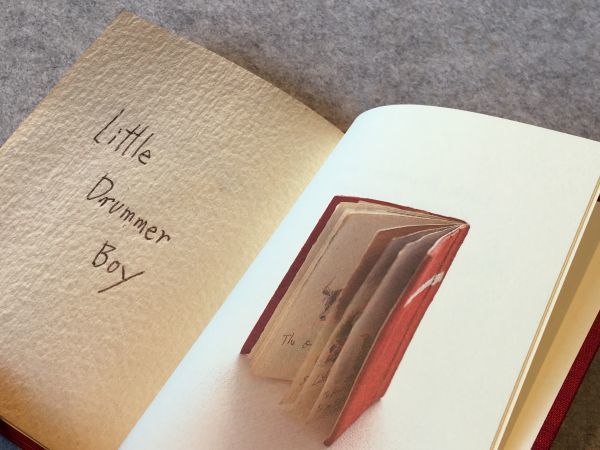 Little
Drummer
Boy